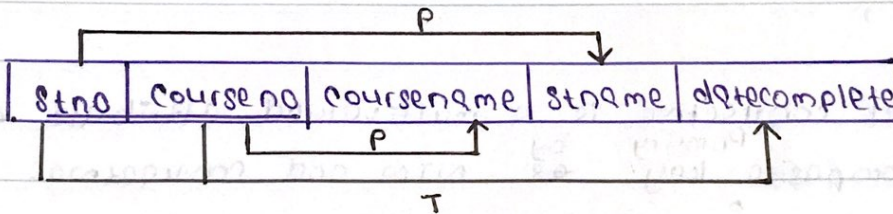 P
stno courseno coursename stname datecomplete
P
T